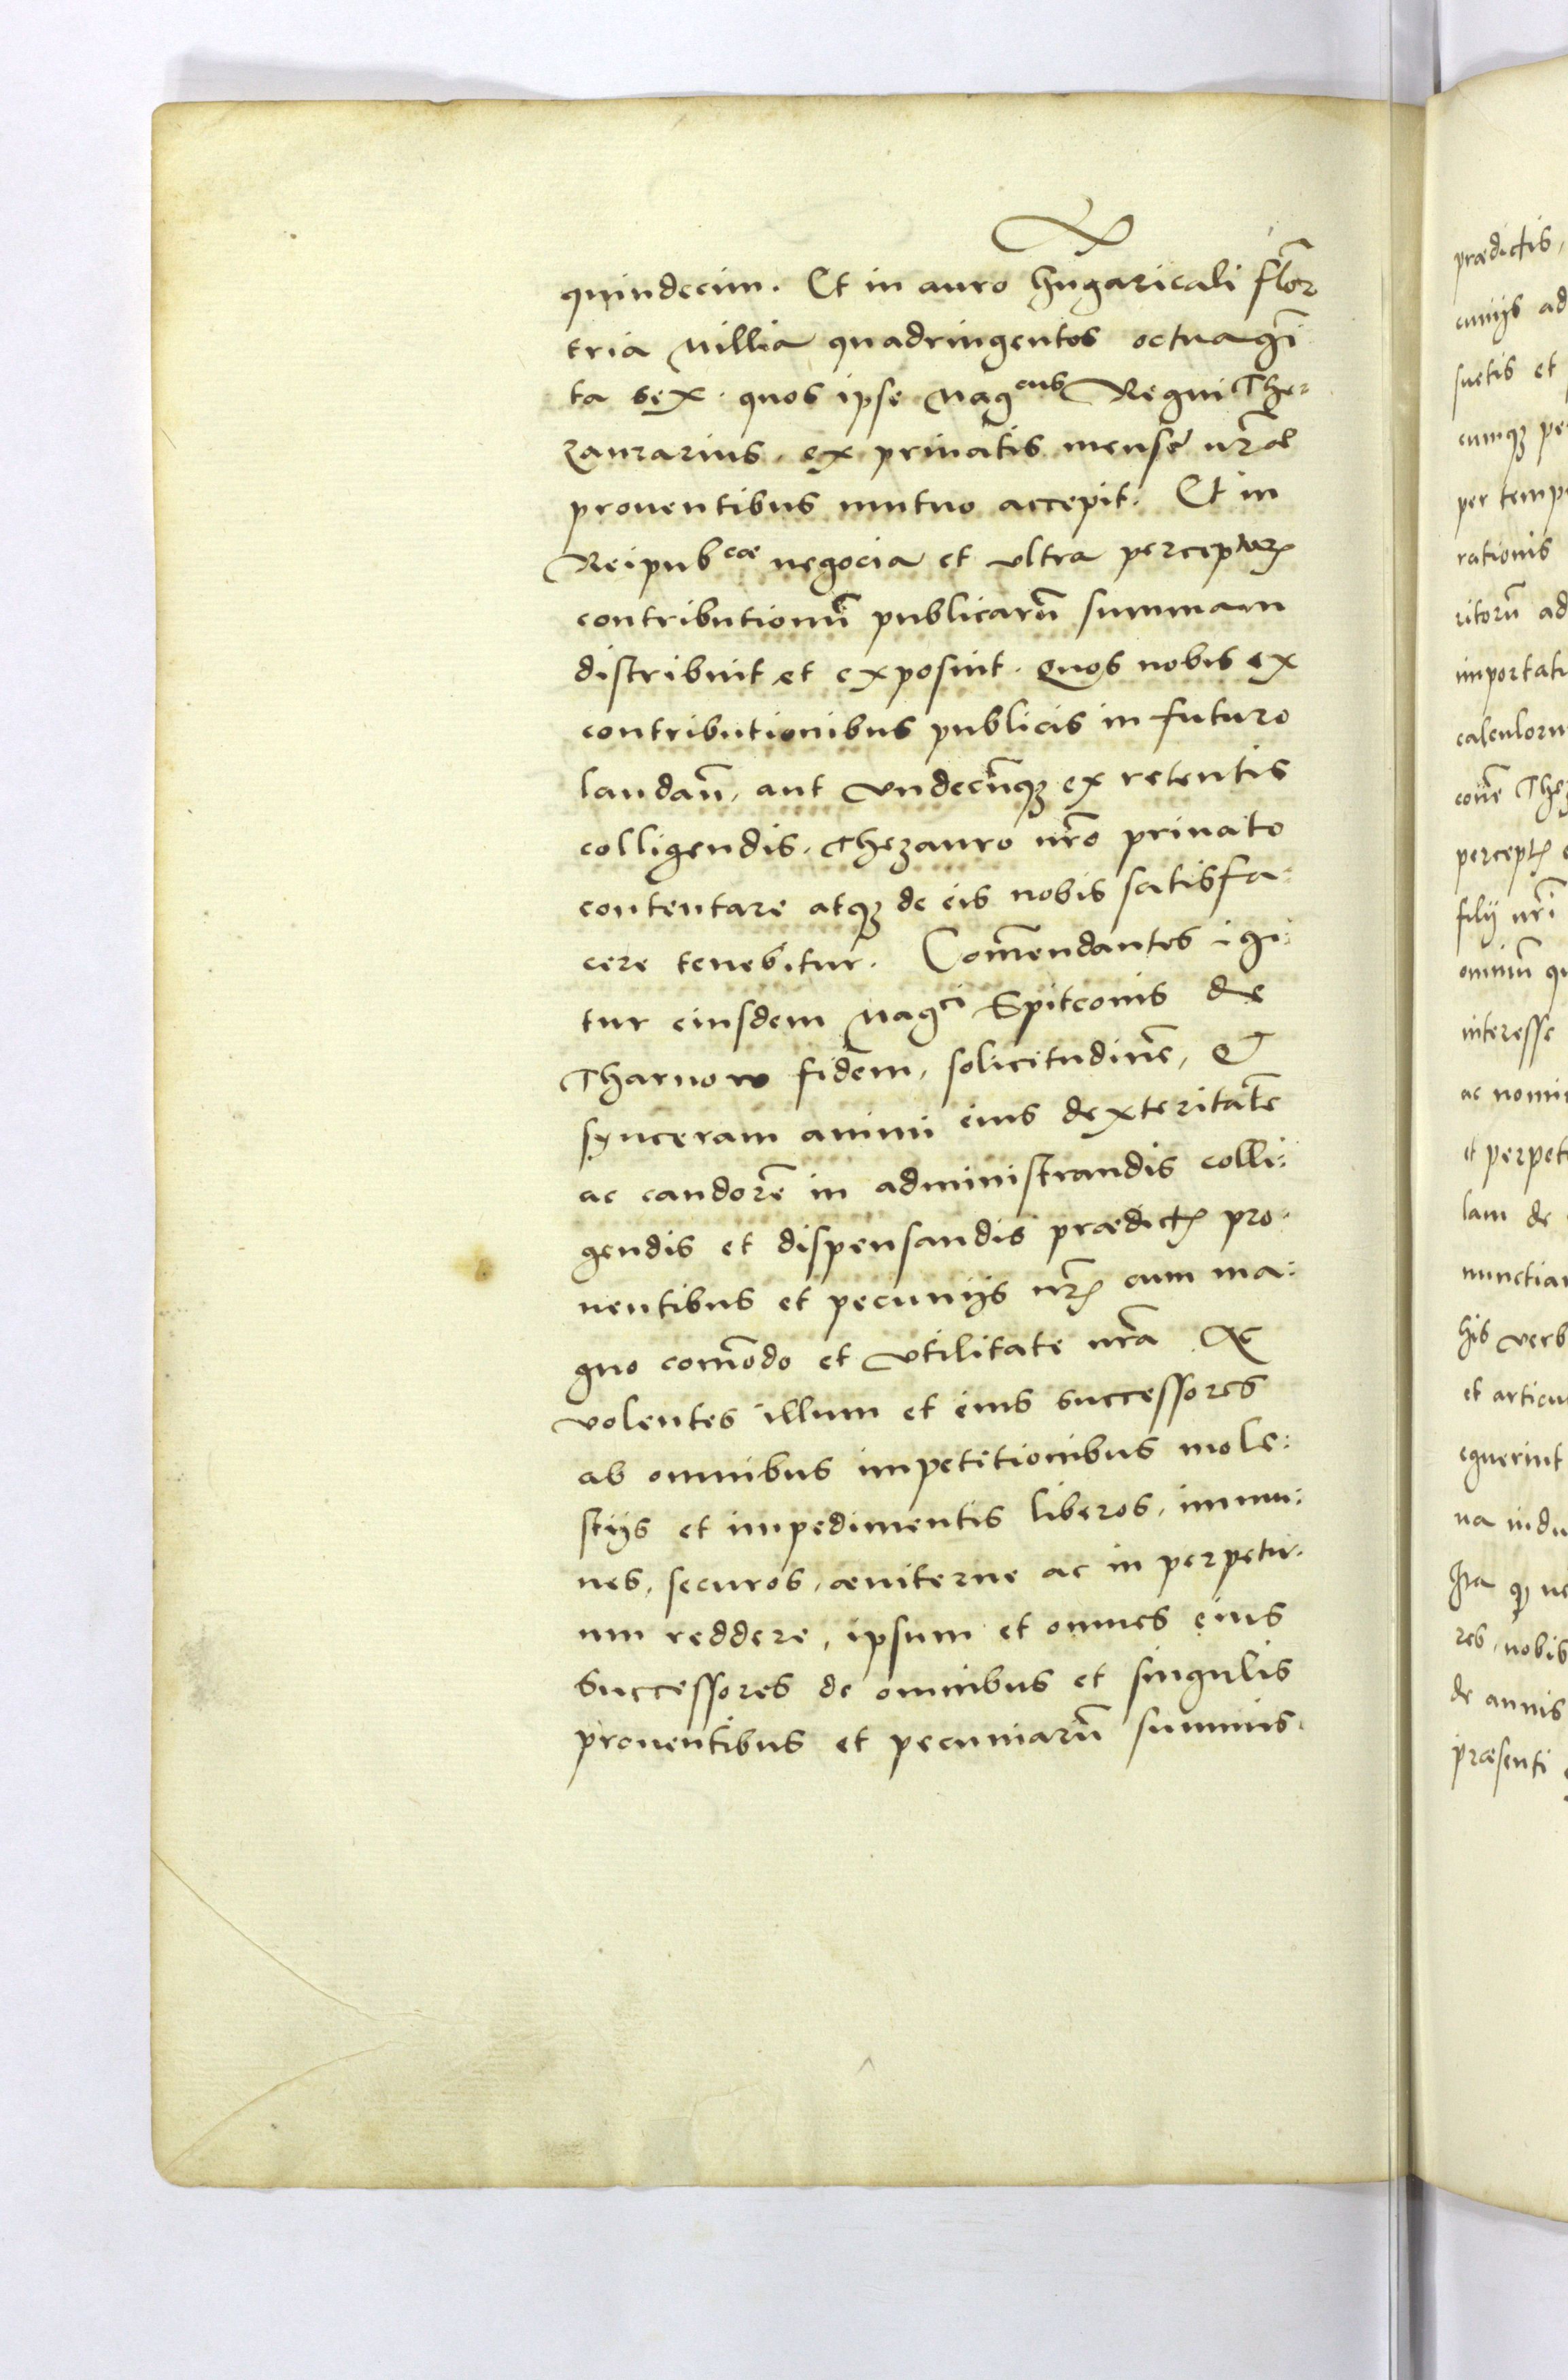 quindecim. Et in auro hungaricali flōr
tria Millia quadringentos octuagī
ta sex. quos ipse Mag<sup>cus</sup> Regni The-
zaurarius, ex priuatis mensę nr̄æ
prouentibus mutuo accepit. Et in
Reipub<sup>cæ</sup> negocia et vltra perceptarꝫ
contributionū publicarū summam
distribuit et exposuit. quos nobis ex
contributionibus publicis in futuro
laudan̄, aut vndecūqꝫ ex retentis
colligendis, Thezauro nrō priuato
contentare atqꝫ de eis nobis satisfa:
cere tenebitur. Com̄endantes igi:
tur eiusdem Mag<sup>ci</sup> Spitconis de
Tharnow fidem, solicitudinē, &
synceram animi eius dexteritatē
ac candorē in administrandis colli:
gendis et dispensandis prædictꝭ pro-
uentibus et pecunijs nrꝭ cum ma:
gno com̄odo et vtilitate nrā Ac
volentes illum et eius successores
ab omnibus impetitionibus mole:
stijs et impedimentis liberos, immu:
nes, securos, æuiterne ac in perpetu-
um reddere, ipsum et omnes eius
Successores de omnibus et singulis
prouentibus et pecuniarū summis.
prædictis,
cunijs ad
suetis et
cumqꝫ pe
per temp
rationis
ritorū ad
importati
calculoru
conē Thez
perceptꝭ
filij nrī
omniū qu
interesse
ac nomi
et perpet
lam de
nunctia
his verb
et articu
eguerint
na indu
res, nobis
de annis
præsenti